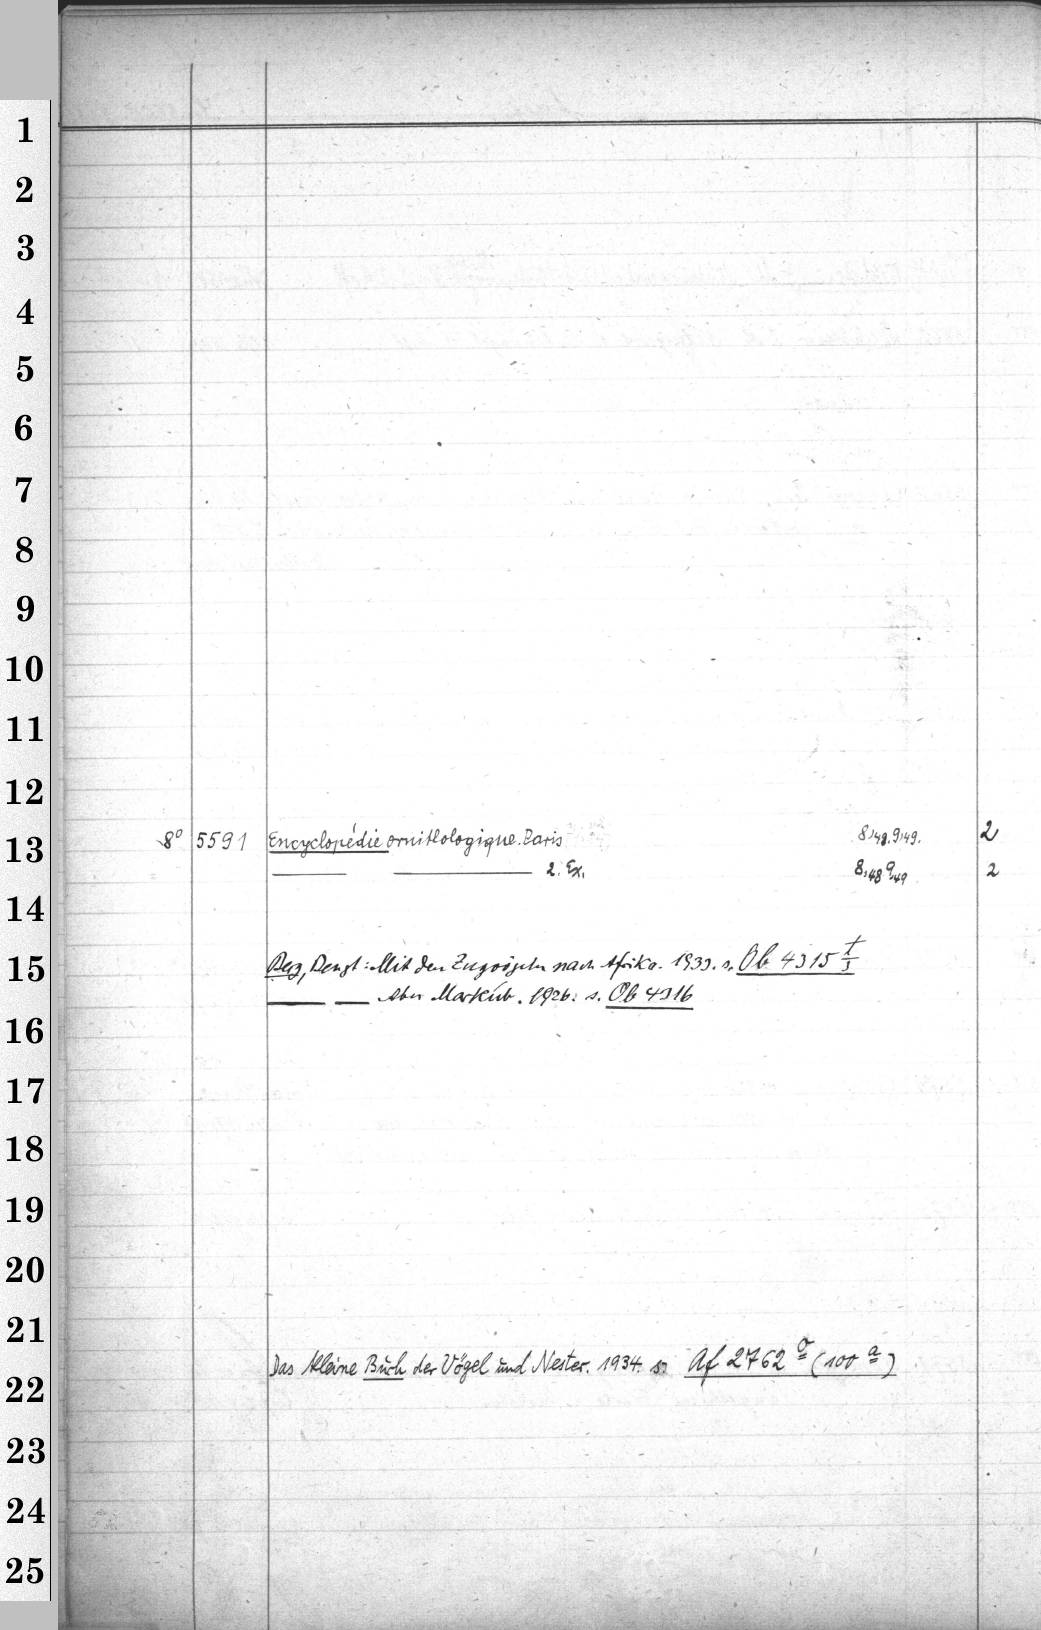 1
2
3
4
5
6
7
8
9
10
11
12
13
8° 5591 Encyclopédie ornithologique. Paris 8,48. 9,49. 2
2. Ex. 8,48 9,49 2
14
15
Berg, Bengt: Mit den Zugvögeln nach Afrika. 1933. s. Ob 4315 t/3
Abu Markúb. 1926. s. Ob 4316
16
17
18
19
20
21
Das kleine Buch der Vögel und Nester. 1934. s. Af 2762 (100 a)
22
23
24
25